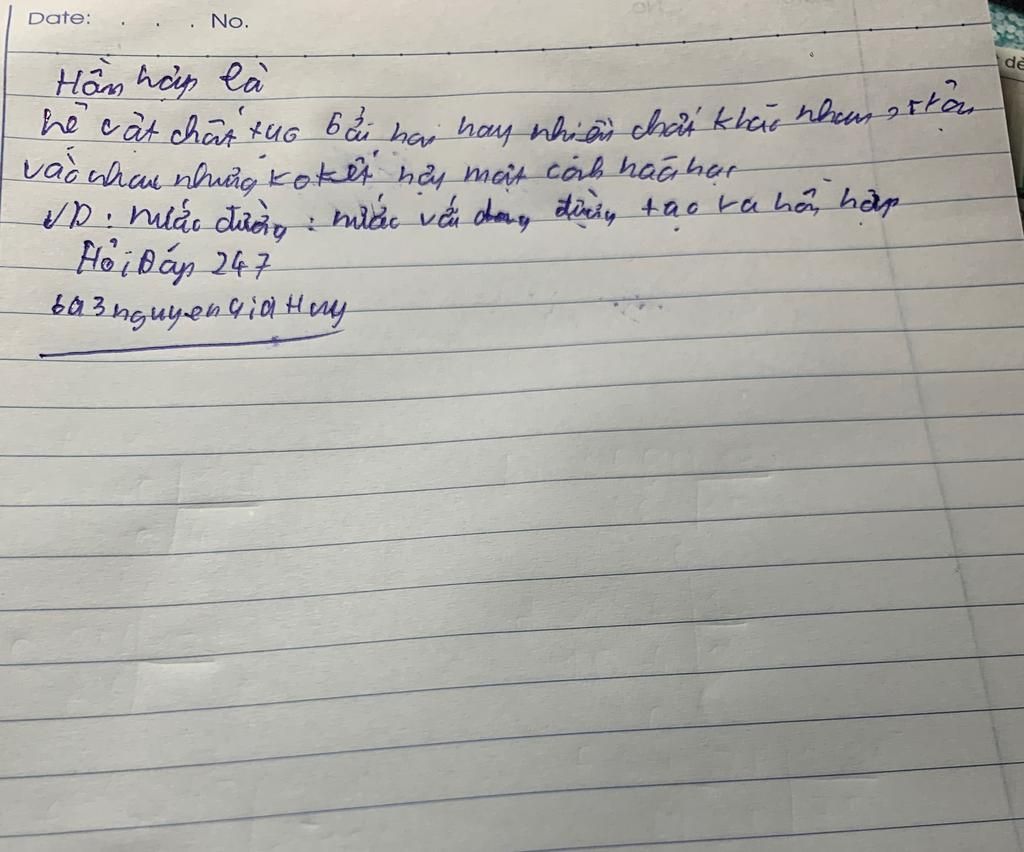 Date: . . . No.
Hỗn hợp là
hệ vật chất tạo bởi hai hay nhiều chất khác nhau, trộn
vào nhau nhưng ko kết hợp một cách hoá học
VD: nước đường: nước với đường tạo ra hỗn hợp
Hỏi Đáp 247
6a3nguyenGiaHuy